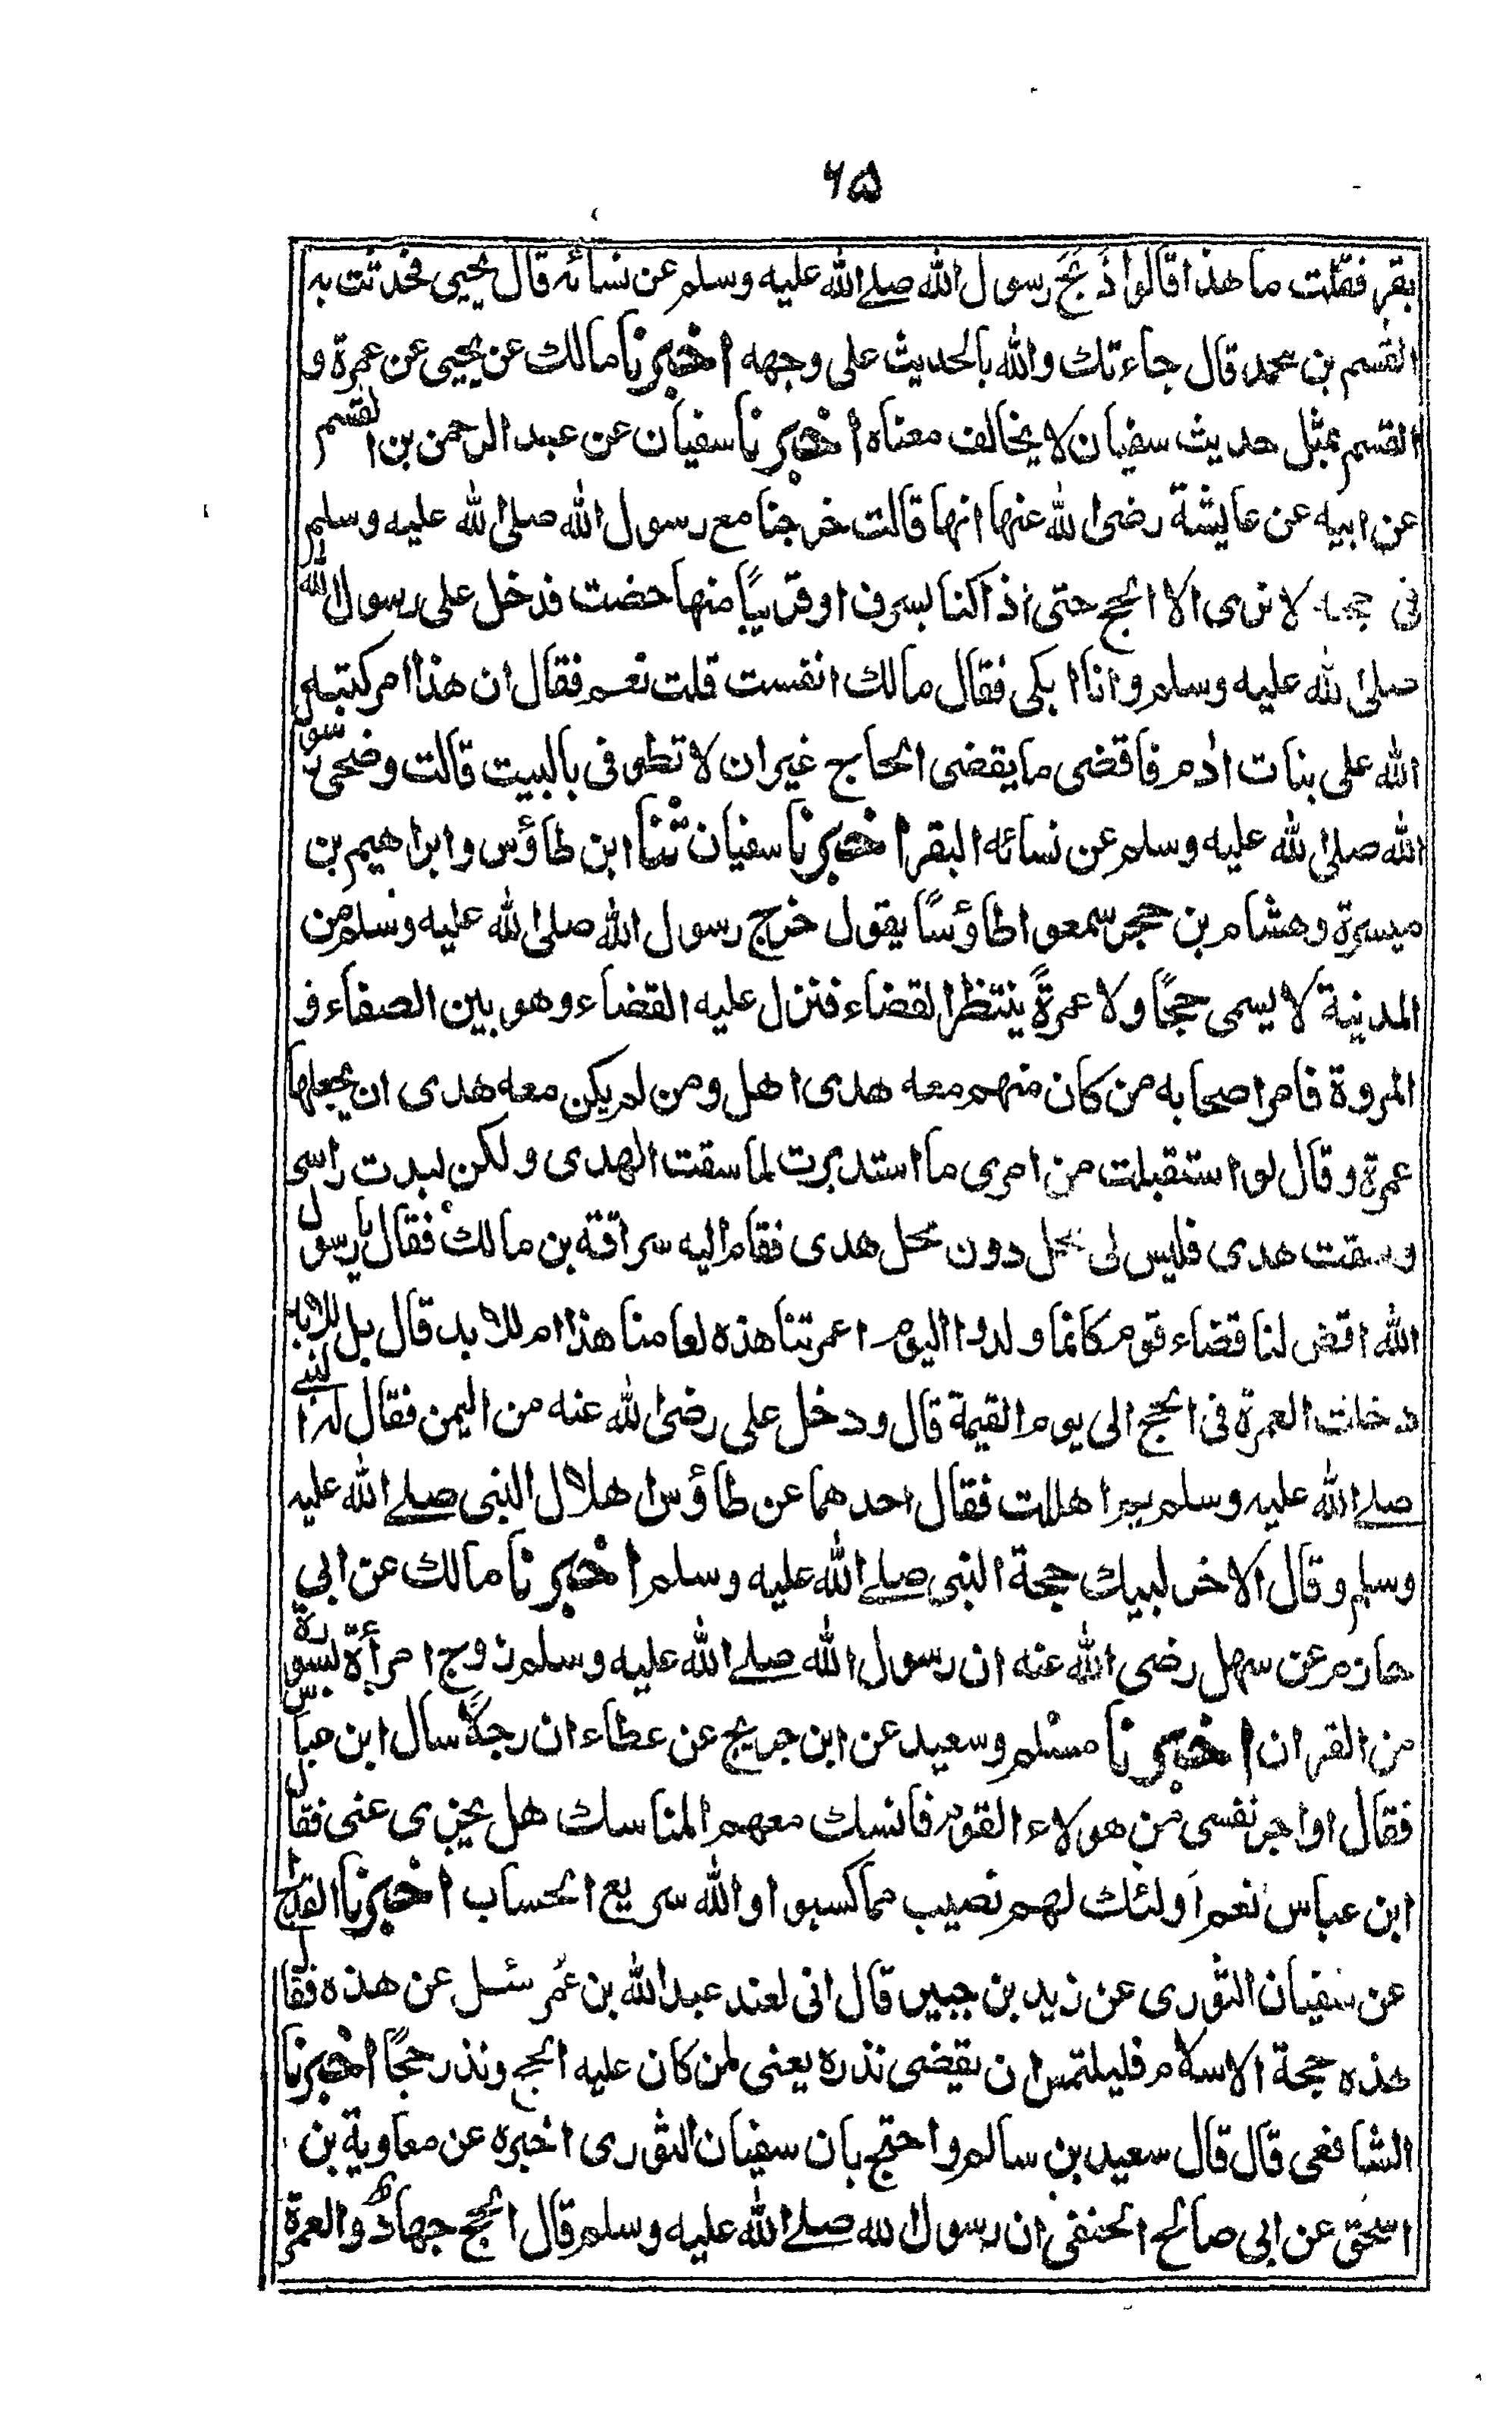 ۶۵
بقر فقلت ما هذا قالوا ذَبَحَ رسول الله صلے الله عليه وسلم عن نسائه قال يحيى فحدثت به
القسم بن محمد قال جاءتك والله بالحديث على وجهه اخبرنا مالك عن يحيى عن عمرة و
القسم بمثل حديث سفيان لا يخالف معناه اخبرنا سفيان عن عبد الرحمن بن القسم
عن ابيه عن عايشة رضى الله عنها انها قالت خرجنا مع رسول الله صلى الله عليه وسلم
فى حجه لا نرى الا الحج حتى اذا كنا بسرف او قريبًا منها حضت فدخل على رسول الله
صلى الله عليه وسلم وانا ابكى فقال مالك انفست قلت نعم فقال ان هذا امر كتبه
الله على بنات ادم فاقضى ما يقضى الحاج غير ان لا تطوفى بالبيت قالت وضحى رسول
الله صلى الله عليه وسلم عن نسائه البقر اخبرنا سفيان ثنا ابن طاؤس وابراهيم بن
ميسرة وهشام بن حجر سمعوا طاؤسًا يقول خرج رسول الله صلى الله عليه وسلم من
المدينة لا يسمى حجًا ولا عمرةً ينتظر القضاء فنزل عليه القضاء وهو بين الصفاء و
المروة فامر اصحابه من كان منهم معه هدى اهل ومن لم يكن معه هدى ان يجعلها
عمرة وقال لو استقبلت من امرى ما استدبرت لما سقت الهدى ولكن لبدت راسى
وسقت هدى فليس لى محل دون محل هدى فقام اليه سراقة بن مالك فقال يا رسول
الله اقض لنا قضاء قوم كانما ولدوا اليوم اعمرتنا هذه لعامنا هذا ام للابد قال بل للابد
دخلت العمرة فى الحج الى يوم القيمة قال ودخل على رضى الله عنه من اليمن فقال له النبے
صلے الله عليه وسلم بم اهللت فقال احدهما عن طاؤس اهلال النبى صلے الله عليه
وسلم وقال الاخر لبيك حجة النبى صلے الله عليه وسلم اخبرنا مالك عن ابي
حازم عن سهل رضى الله عنه ان رسول الله صلے الله عليه وسلم زوج امرأة بسورة
من القران اخبرنا مسلم وسعيد عن ابن جريج عن عطاء ان رجلًا سال ابن عباس
فقال اواجر نفسى من هولاء القوم فانسك معهم المناسك هل يجزى عنى فقال
ابن عباس نعم اولئك لهم نصيب مما كسبوا والله سريع الحساب اخبرنا القداح
عن سفيان الثورى عن زيد بن جبير قال انى لعند عبد الله بن عمر سئل عن هذه فقال
هذه حجة الاسلام فليلتمس ان يقضى نذره يعنى لمن كان عليه الحج ونذر حجًا اخبرنا
الشافعى قال قال سعيد بن سالم واحتج بان سفيان الثورى اخبره عن معاوية بن
اسحق عن ابى صالح الحنفى ان رسول الله صلے الله عليه وسلم قال الحج جهادٌ والعمرة